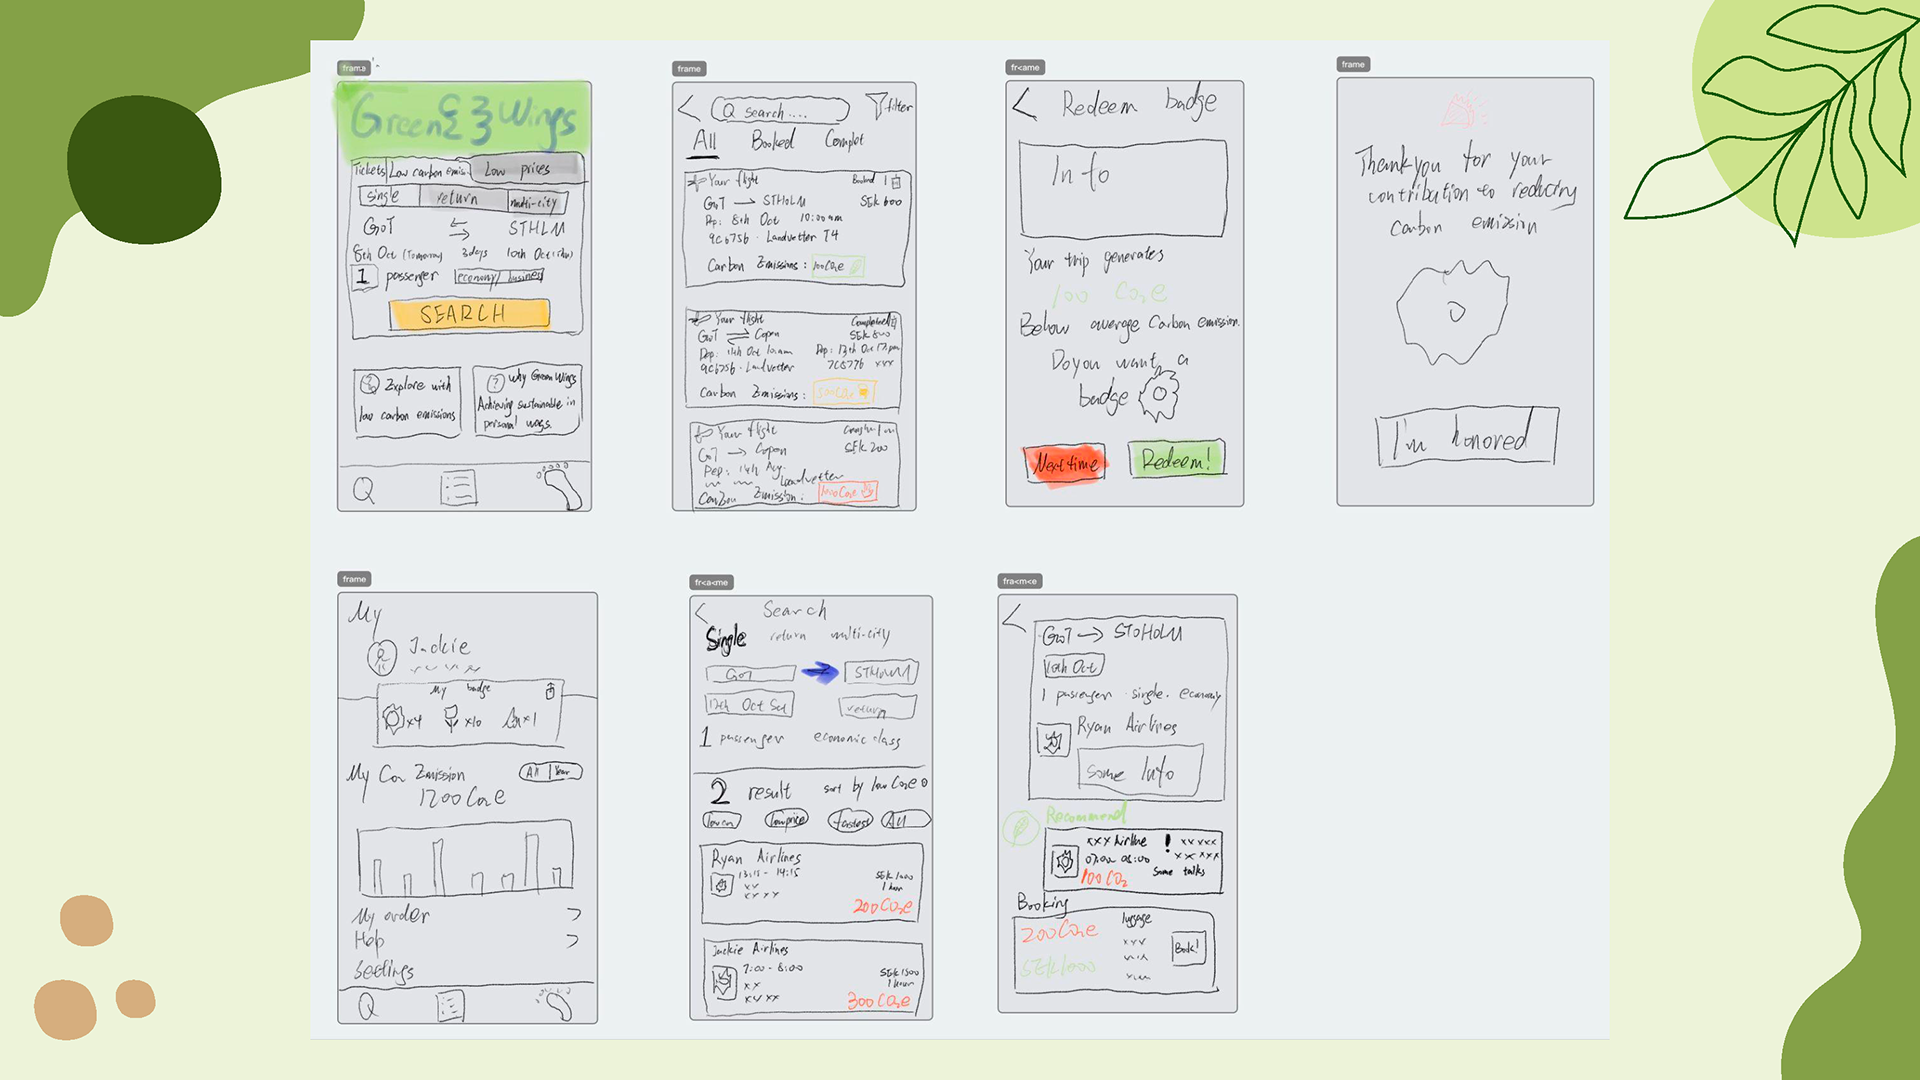 frame
Green Wings
Tickets Low carbon emis. Low prices
single return multi-city
GOT STHLM
(Tomorrow) 3days 10th Oct (Thu)
1 passenger economy/
SEARCH
? Explore with
low carbon emissions
? why Green Wings
Achieving sustainable in
personal ways.
frame
search....
filter
All Booked Complet
Your flight Booked
GOT STHOLM SEK 600
Dep: 8th Oct 10:00am
9C6756 · Landvetter T4
Carbon Emissions : 100CO2e
Your flight Completed
GOT Copen SEK 800
Dep: 14th Oct 10:am
9C6756 · Landvetter 7C8776 xxx
Carbon Emissions :
Your flight
GOT Copen SEK 200
Dep: 14th Aug.
Landvetter
Carbon Emission :
fr<ame
Redeem badge
Info
Your trip generates
100 CO2e
Below average Carbon emission.
Do you want a
badge
Next time Redeem!
frame
Thankyou for your
contribution to reducing
carbon emission
I'm honored
frame
My
Jackie
My badge
x4 x10 x1
My Emission All Year
1200CO2e
My order >
Help >
Settings
fr<a<me
< Search
Single return multi-city
GOT STHOLM
12th Oct Sat return
1 passenger economic class
2 result sort by low CO2e
low price fastest All
Ryan Airlines
13:15 - 14:15 SEK 1000
xx 1 hour
xxxx 200CO2e
Jackie Airlines
7:00 - 8:00 SEK 1500
xx 1 hour
xxxx 300CO2e
fra<m<e
GOT STOHOLM
12th Oct
1 passenger · single · economy
Ryan Airlines
Some Info
Recommend
xxx Airline ! xxxxx
07:00 08:00 xxxxx
100CO2 Some talks
Booking
200CO2e luggage
xxx
SEK1000 Book!